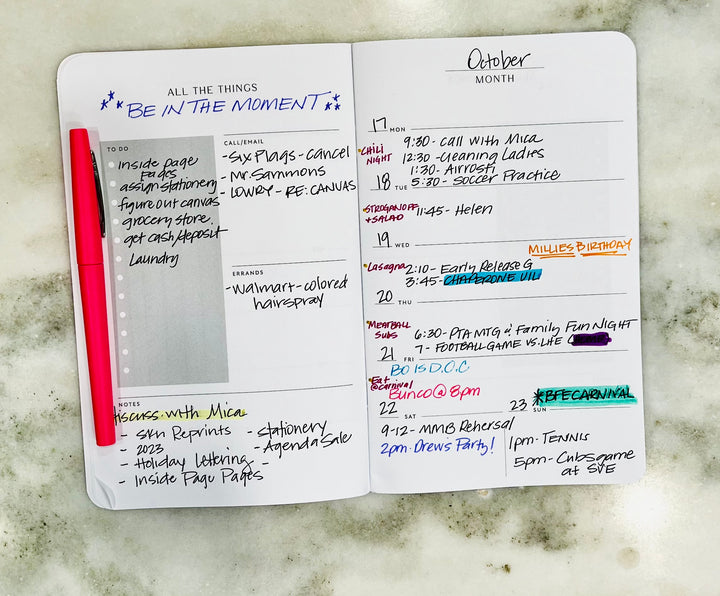 ALL THE THINGS
BE IN THE MOMENT
TO DO
Inside page
Pages
assign stationery
figure out canvas
grocery store
get cash/deposit
Laundry
CALL/EMAIL
- Six Flags - cancel
- Mr. Sammons
- LOWRY - RE: CANVAS
ERRANDS
- Walmart - colored
hairspray
NOTES
Discuss with Mica
- Skn Reprints
- 2023
- Holiday Lettering
- Inside Page Pages
- Stationery
- Agenda Sale
-
October
MONTH
17 MON
CHILI
NIGHT
9:30 - call with Mica
12:30 - Cleaning Ladies
1:30 - Airrosti
5:30 - Soccer Practice
18 TUE
STROGANOFF
+ SALAD
11:45 - Helen
19 WED
MILLIES BIRTHDAY
Lasagna
2:10 - Early Release G
3:45 - CHAPERONE UIL
20 THU
MEATBALL
SUBS
6:30 - PTA MTG & Family Fun Night
7 - FOOTBALL GAME VS. LIFE
21 FRI
BO IS D.O.C
Eat
@carnival
BUNCO @ 8pm
22 SAT
9-12 - MMB Rehersal
2pm - Drews Party!
23 SUN
*BFE CARNIVAL
1pm - TENNIS
5pm - Cubs game
at SVE